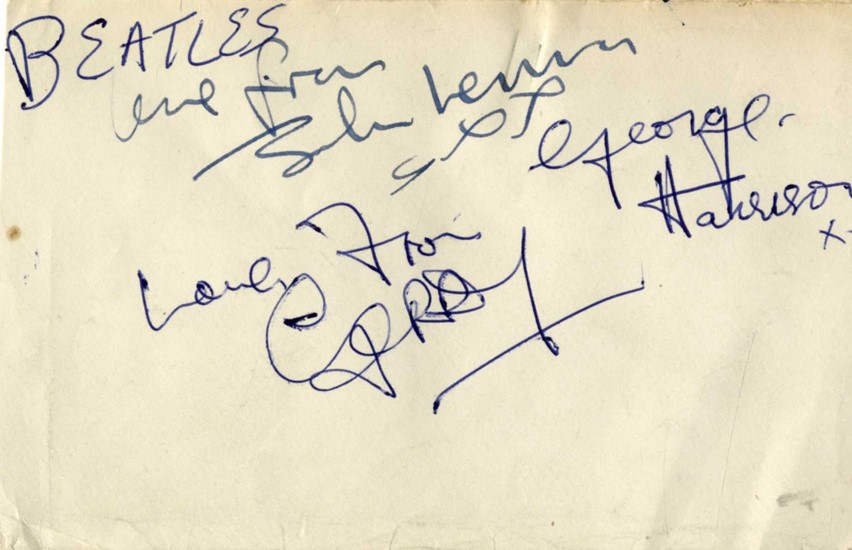 BEATLES
love from
John Lennon
xxx
George
Harrison
x
Love from
GERRY